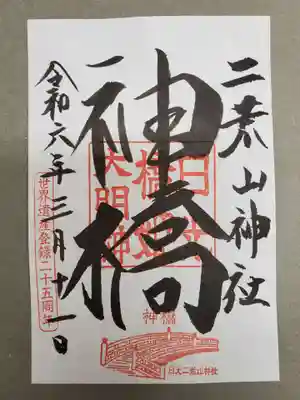 二荒山神社
神橋
令和六年三月十一日
橋姫
大明神
世界遺産登録二十五周年
神橋
日光二荒山神社